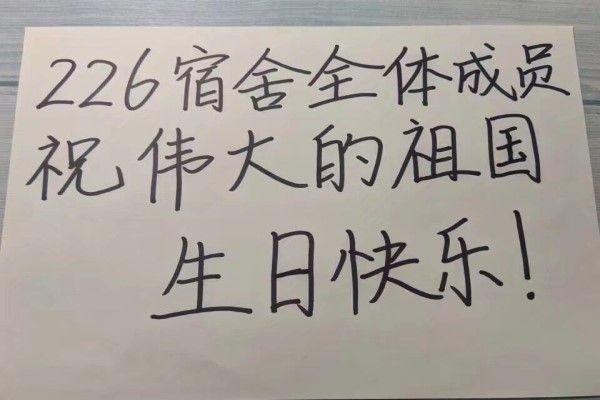 226宿舍全体成员
祝伟大的祖国
生日快乐!